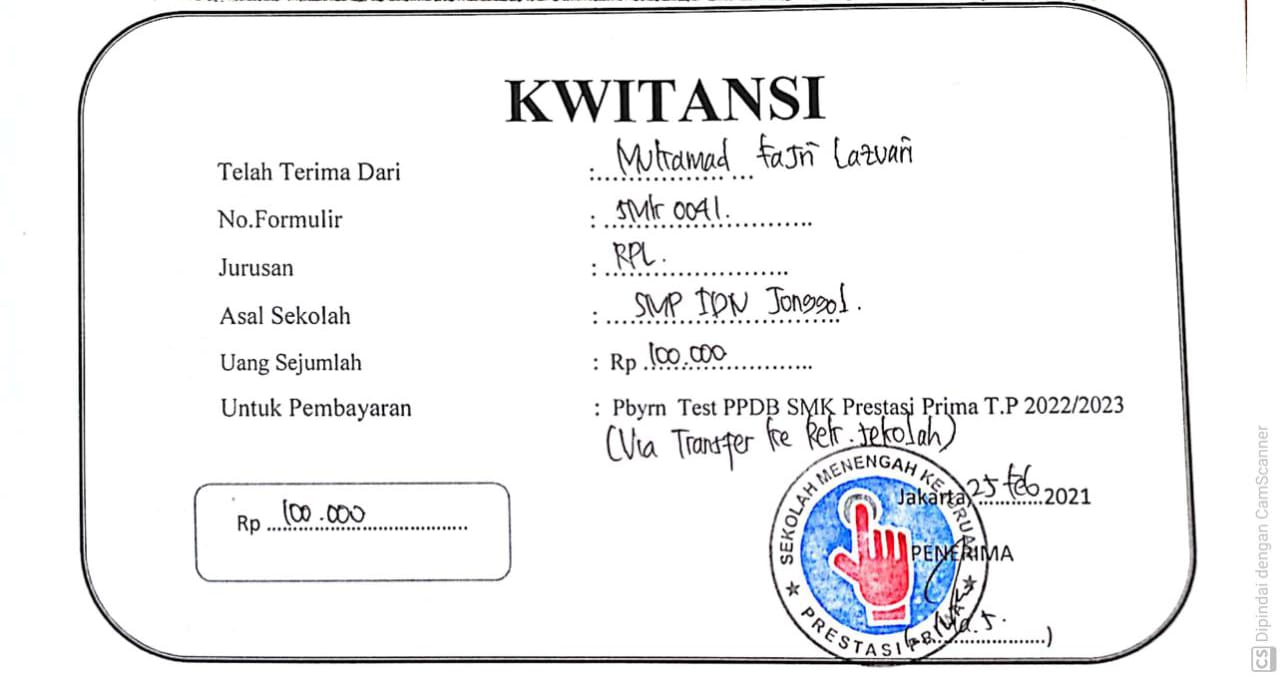 KWITANSI
Telah Terima Dari : Muhamad Fajri Lazuari
No.Formulir : SMK 0041.
Jurusan : RPL.
Asal Sekolah : SMP IDN Jonggol.
Uang Sejumlah : Rp 100.000
Untuk Pembayaran : Pbyrn Test PPDB SMK Prestasi Prima T.P 2022/2023
(Via Transfer ke Rek. Sekolah)
SEKOLAH MENENGAH KEJURUAN
Jakarta, 25 Feb 2021
Rp 100.000
PENERIMA
PRESTASI PRIMA
CS Dipindai dengan CamScanner